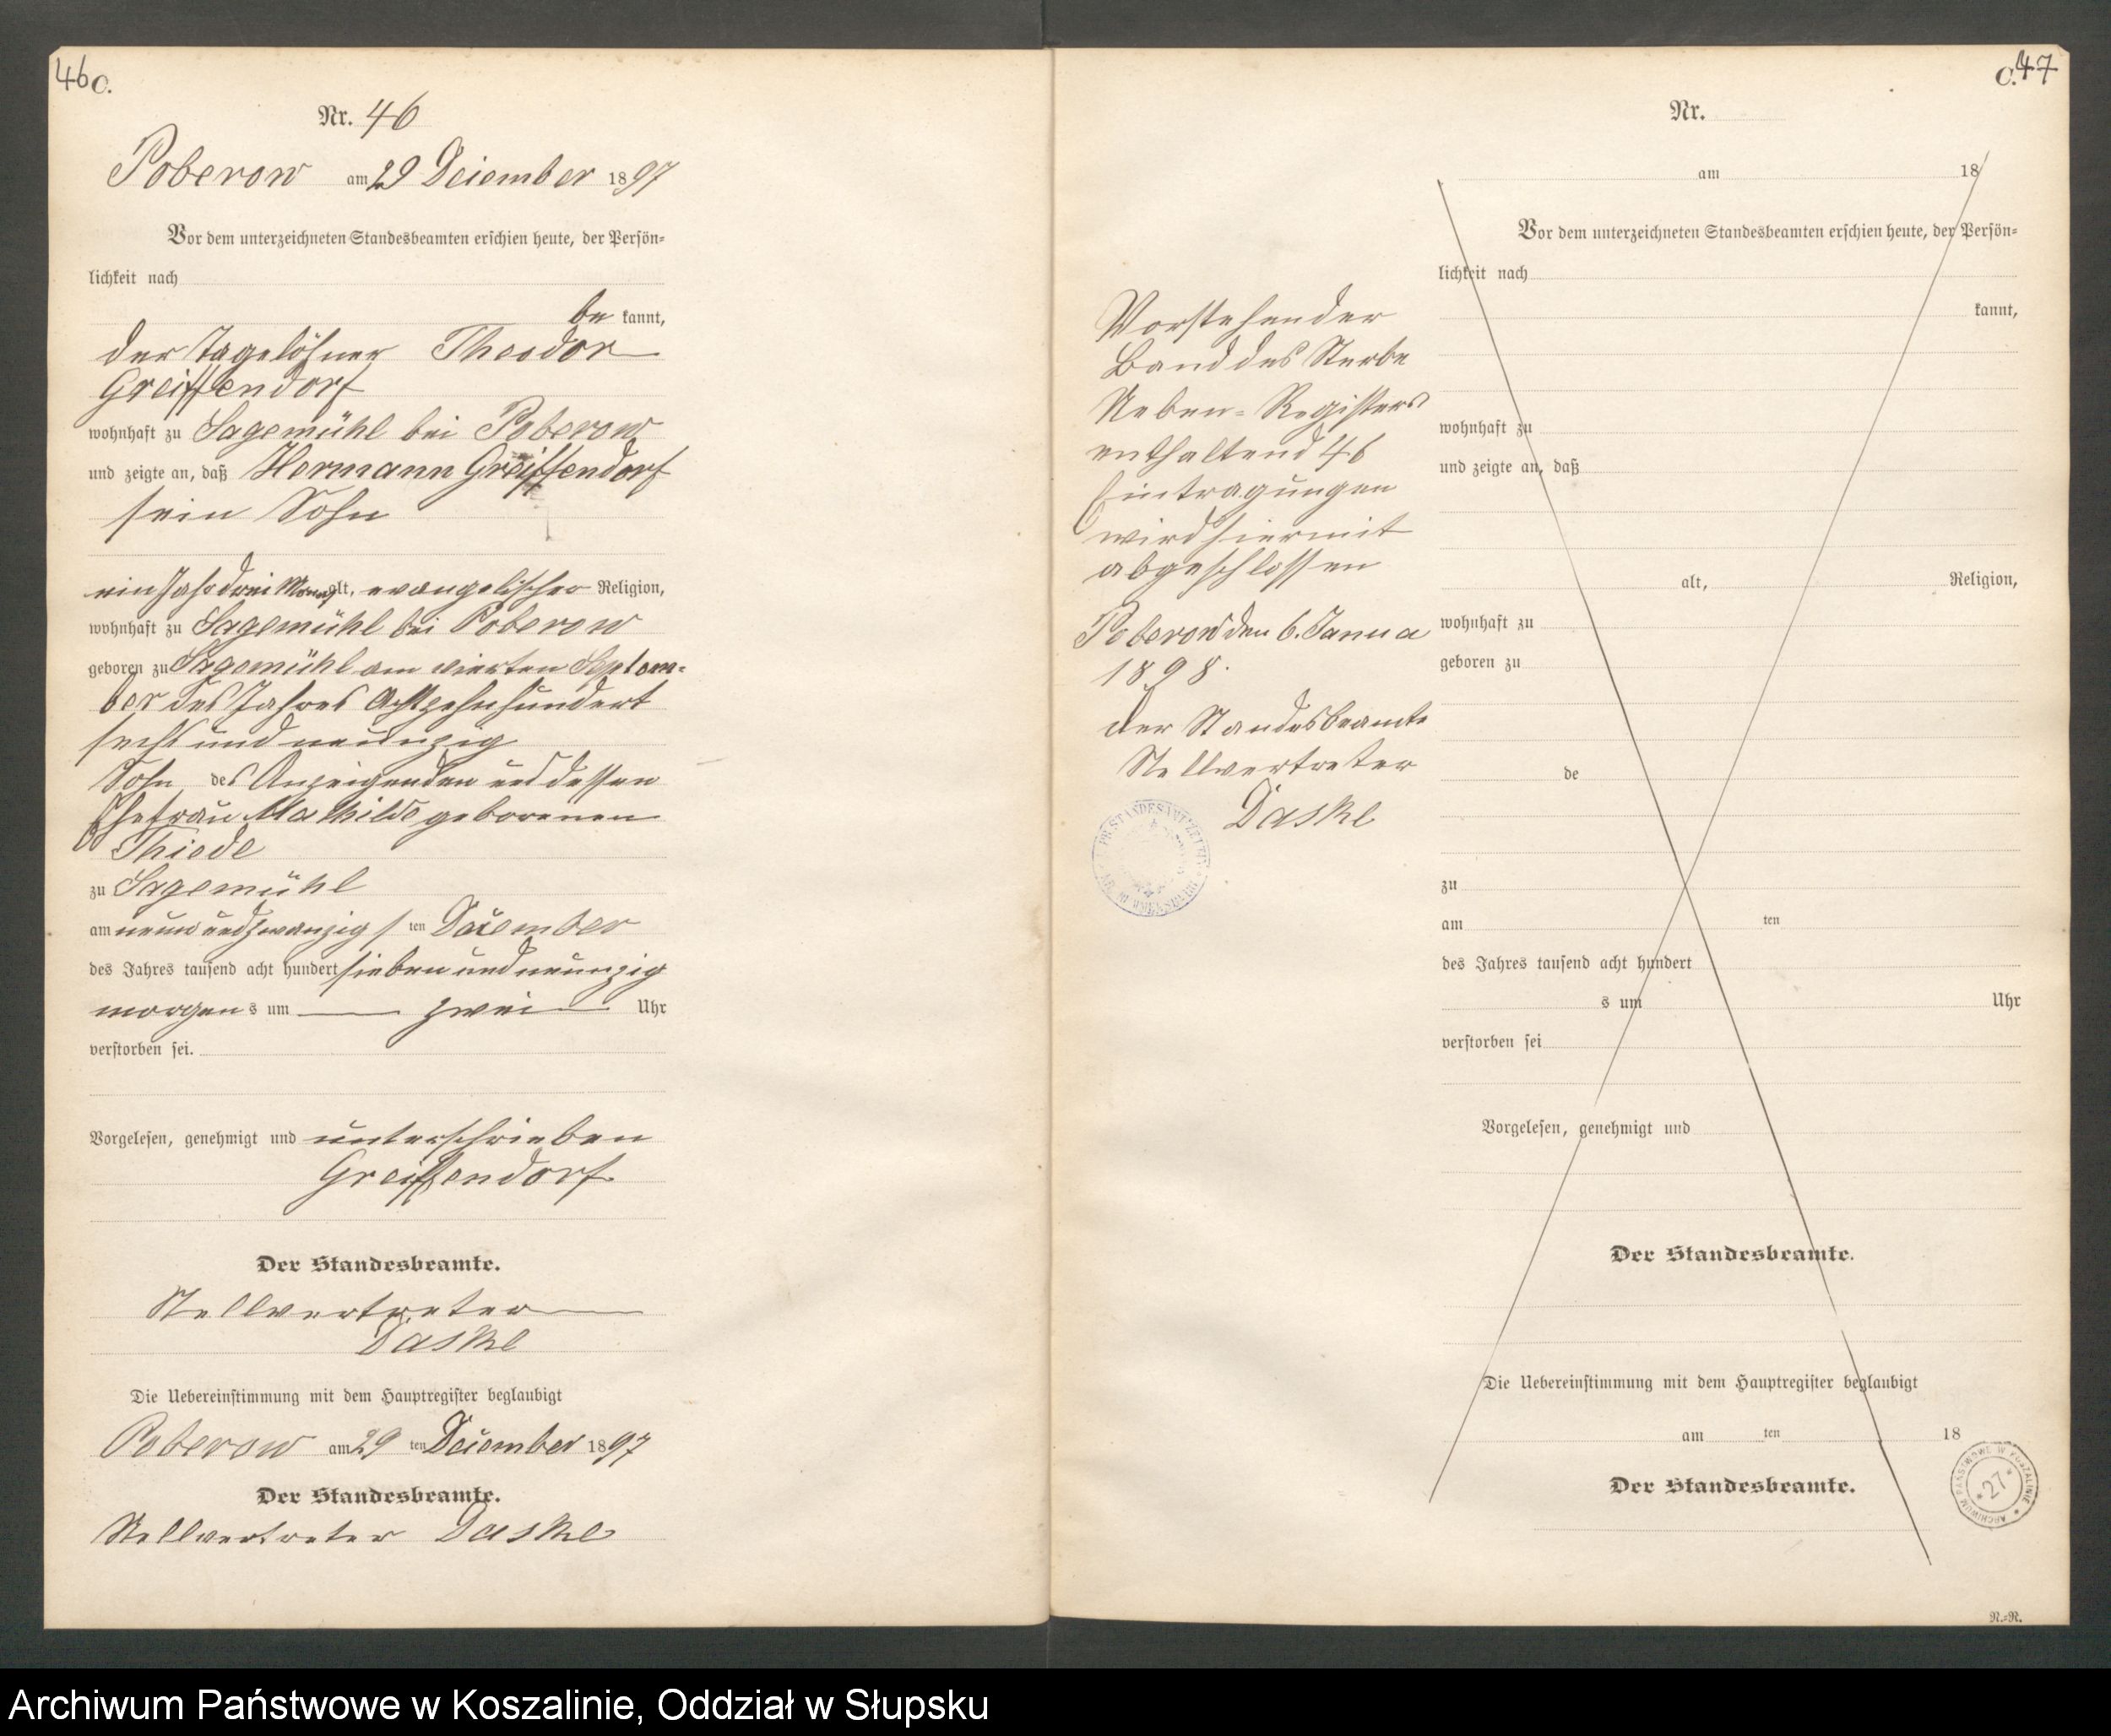 46
C.
Nr. 46
Poberow am 29 Dezember 1897
Vor dem unterzeichneten Standesbeamten erschien heute, der Persön-
lichkeit nach
be kannt,
der Tagelöhner Theodor
Greiffendorf
wohnhaft zu Sagemühl bei Poberow
und zeigte an, daß Hermann Greiffendorf
sein Sohn
ein Jahr drei Monat alt, evangelischer Religion,
wohnhaft zu Sagemühl bei Poberow
geboren zu Sagemühl am vierten Septem-
ber des Jahres Achtzehnhundert
sechs und neunzig
Sohn des Anzeigenden und dessen
Ehefrau Mathilde geborenen
Thiede
zu Sagemühl
am neun und zwanzigsten Dezember
des Jahres tausend acht hundert sieben und neunzig
morgens um zwei Uhr
verstorben sei.
Vorgelesen, genehmigt und unterschrieben
Greiffendorf
Der Standesbeamte.
Stellvertreter
Daske
Die Uebereinstimmung mit dem Hauptregister beglaubigt
Poberow am 29 ten Dezember 1897
Der Standesbeamte.
Stellvertreter Daske
C. 47
Nr.
am 18
Vor dem unterzeichneten Standesbeamten erschien heute, der Persön-
lichkeit nach
kannt,
wohnhaft zu
und zeigte an, daß
alt, Religion,
wohnhaft zu
geboren zu
de
zu
am ten
des Jahres tausend acht hundert
s um Uhr
verstorben sei
Vorgelesen, genehmigt und
Der Standesbeamte.
Die Uebereinstimmung mit dem Hauptregister beglaubigt
am ten 18
Der Standesbeamte.
Vorstehender
Band des Sterbe
Neben-Registers
enthaltend 46
Eintragungen
wird hiermit
abgeschlossen
Poberow den 6. Janua
1898.
Der Standesbeamte
Stellvertreter
Daske
ARCHIWUM PAŃSTWOWE W KOSZALINIE
* 27 *
N.=N.
Archiwum Państwowe w Koszalinie, Oddział w Słupsku